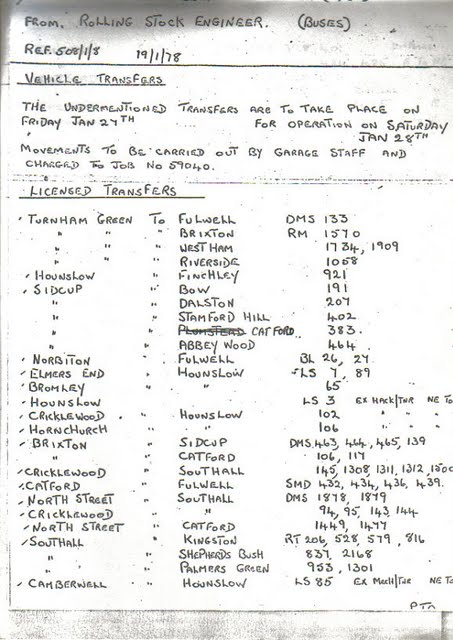 FROM. ROLLING STOCK ENGINEER. (BUSES)
REF. 508/1/8 19/1/78
VEHICLE TRANSFERS
THE UNDERMENTIONED TRANSFERS ARE TO TAKE PLACE ON
FRIDAY JAN 27TH FOR OPERATION ON SATURDAY
JAN 28TH
MOVEMENTS TO BE CARRIED OUT BY GARAGE STAFF AND
CHARGED TO JOB NO 59040.
LICENSED TRANSFERS
TURNHAM GREEN TO FULWELL DMS 133
" " " BRIXTON RM 1570
" " " WEST HAM 1734, 1909
" " " RIVERSIDE 1058
HOUNSLOW " FINCHLEY 921
SIDCUP " BOW 191
" " DALSTON 207
" " STAMFORD HILL 402
" " PLUMSTEAD CATFORD 383.
" " ABBEY WOOD 464
NORBITON " FULWELL BL 26, 27
ELMERS END " HOUNSLOW LS 7, 89
BROMLEY " " 65
HOUNSLOW LS 3 EX MACH/TNR NE TO
CRICKLEWOOD " HOUNSLOW 102 " " "
HORNCHURCH " " 106 " " "
BRIXTON " SIDCUP DMS 463, 464, 465, 139
" CATFORD 106, 117
CRICKLEWOOD " SOUTHALL 145, 1308, 1311, 1312, 1500
CATFORD " FULWELL SMD 432, 434, 436, 439.
NORTH STREET " SOUTHALL DMS 1878, 1879
CRICKLEWOOD " " 94, 95, 143, 144
NORTH STREET " CATFORD 1449, 1477
SOUTHALL " KINGSTON RT 206, 528, 579, 816
" " SHEPHERDS BUSH 837, 2168
" " PALMERS GREEN 953, 1301
CAMBERWELL " HOUNSLOW LS 85 EX Mech/Tnr NE TO
PTO